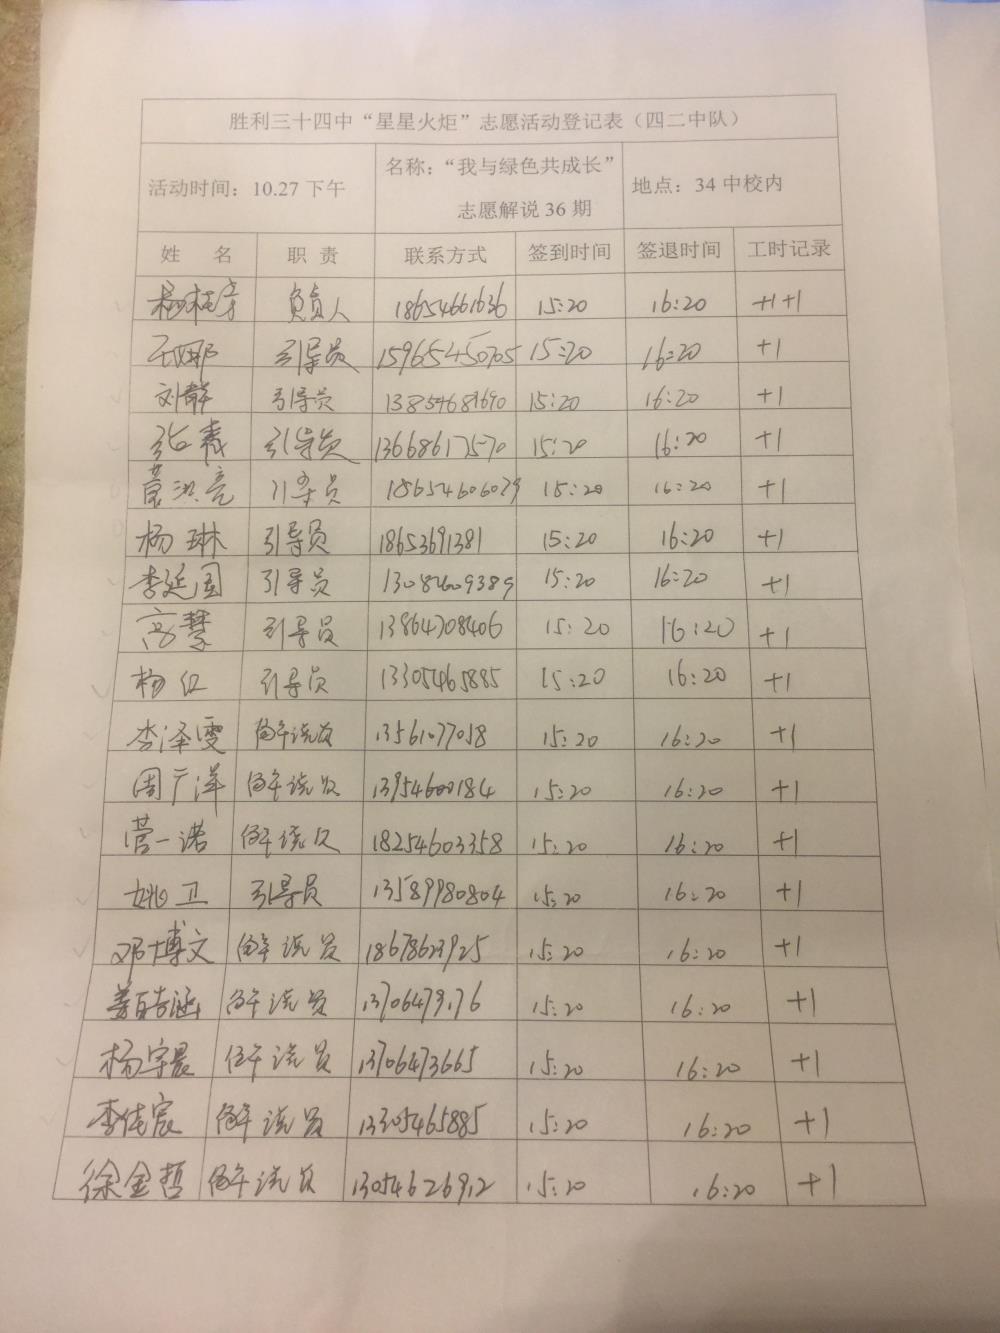 胜利三十四中“星星火炬”志愿活动登记表（四二中队）
活动时间：10.27下午 名称：“我与绿色共成长” 志愿解说36期 地点：34中校内
姓 名 职 责 联系方式 签到时间 签退时间 工时记录
负责人 18654661636 15:20 16:20 +1+1
引导员 15965450705 15:20 16:20 +1
刘静 引导员 13854681690 15:20 16:20 +1
张青 引导员 13668617570 15:20 16:20 +1
董洪亮 引导员 18654606029 15:20 16:20 +1
杨琳 引导员 18653691381 15:20 16:20 +1
李延国 引导员 13084609389 15:20 16:20 +1
高慧 引导员 13864708406 15:20 16:20 +1
杨红 引导员 13305465885 15:20 16:20 +1
李泽雯 解说员 13561077058 15:20 16:20 +1
周广洋 解说员 13954600184 15:20 16:20 +1
菅一诺 解说员 18254603358 15:20 16:20 +1
姚卫 引导员 13589980804 15:20 16:20 +1
邓博文 解说员 15:20 16:20 +1
解说员 15:20 16:20 +1
杨宇晨 解说员 13706473665 15:20 16:20 +1
李佳宸 解说员 13305465885 15:20 16:20 +1
徐金哲 解说员 15:20 16:20 +1